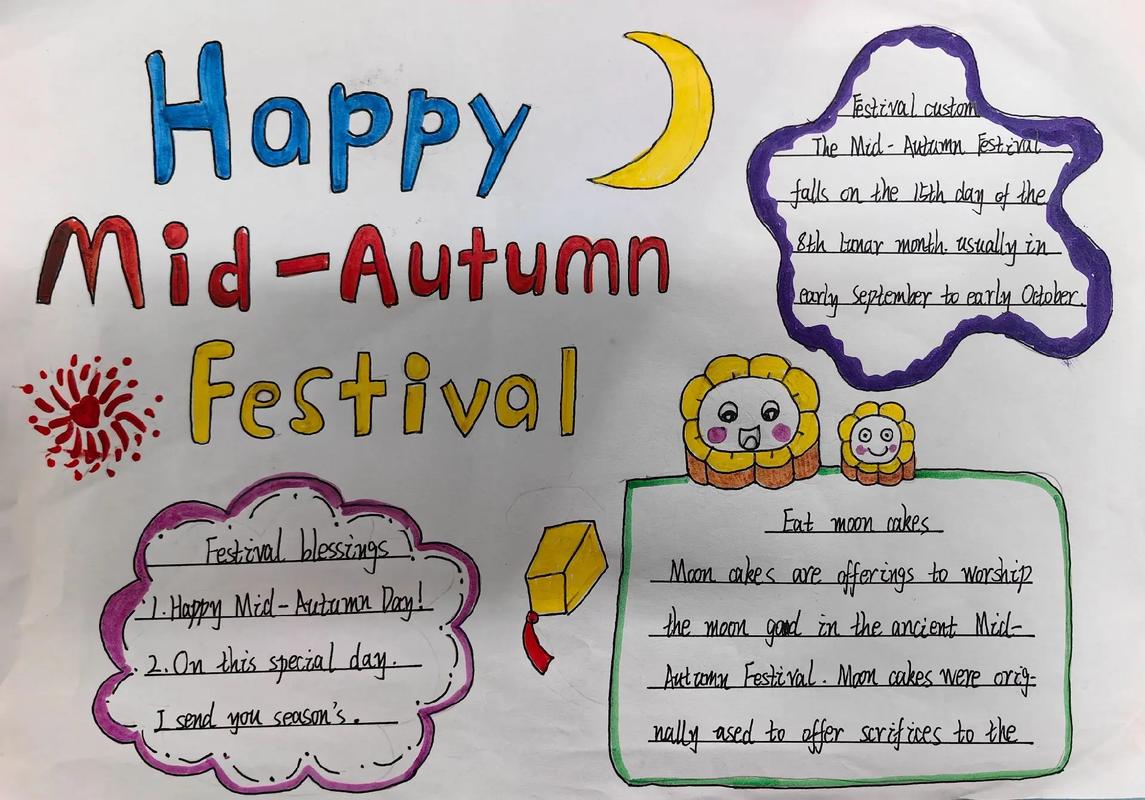 Happy
Mid-Autumn
Festival
Festival custom
The Mid-Autumn Festival
falls on the 15th day of the
8th lunar month. usually in
early september to early October.
Festival blessings
1. Happy Mid-Autumn Day!
2. On this special day.
I send you season's.
Eat moon cakes
Moon cakes are offerings to worship
the moon in the ancient Mid-
Autumn Festival. Moon cakes were orig-
nally ased to offer scrifices to the